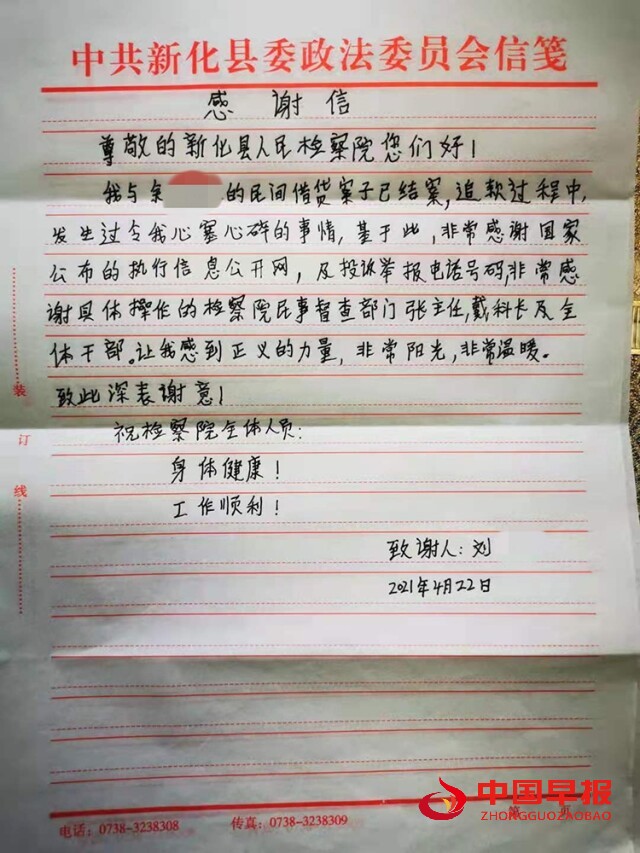 中共新化县委政法委员会信笺
感谢信
尊敬的新化县人民检察院您们好！
我与余 的民间借贷案子已结案，追款过程中，
发生过令我心塞心碎的事情，基于此，非常感谢国家
公布的执行信息公开网，及投诉举报电话号码，非常感
谢具体操作的检察院民事督查部门张主任，戴科长及全
体干部。让我感到正义的力量，非常阳光，非常温暖。
致此深表谢意！
祝检察院全体人员：
身体健康！
工作顺利！
致谢人：刘
2021年4月22日
装
订
线
电话：0738-3238308 传真：0738-3238309 第 页
中国早报
ZHONGGUOZAOBAO